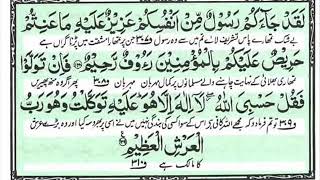 لَقَدْ جَآءَكُمْ رَسُوْلٌ مِّنْ اَنْفُسِكُمْ عَزِيْزٌ عَلَيْهِ مَا عَنِتُّمْ
بے شک تمھارے پاس تشریف لائے تم میں سے وہ رسول ف۳۰۷ جن پر تمھارا مشقت میں پڑنا گراں ہے
حَرِيْصٌ عَلَيْكُمْ بِالْمُؤْمِنِيْنَ رَءُوْفٌ رَّحِيْمٌ ۝ فَاِنْ تَوَلَّوْا
تمھاری بھلائی کے نہایت چاہنے والے مسلمانوں پر کمال مہربان مہربان ف۳۰۸ پھر اگر وہ منھ پھیریں
فَقُلْ حَسْبِيَ اللّٰهُ لَآ اِلٰهَ اِلَّا هُوَ عَلَيْهِ تَوَكَّلْتُ وَهُوَ رَبُّ
ف۳۰۹ تو تم فرما دو کہ مجھے اللہ کافی ہے اس کے سوا کسی کی بندگی نہیں میں نے اسی پر بھروسہ کیا اور وہ بڑے عرش
الْعَرْشِ الْعَظِيْمِ ۝
کا مالک ہے ف۳۱۰